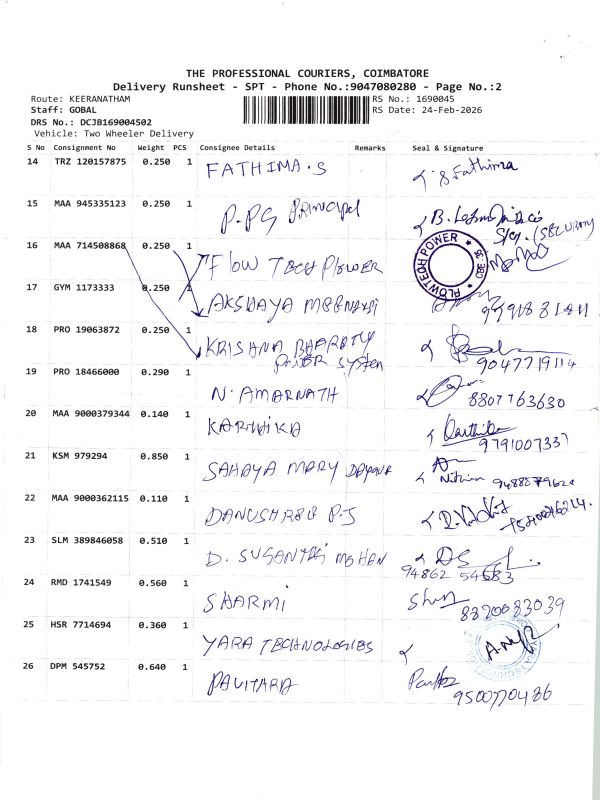 THE PROFESSIONAL COURIERS, COIMBATORE
Delivery Runsheet - SPT - Phone No.:9047080280 - Page No.:2
Route: KEERANATHAM RS No.: 1690045
Staff: GOBAL RS Date: 24-Feb-2026
DRS No.: DCJB169004502
Vehicle: Two Wheeler Delivery
S No Consignment No Weight PCS Consignee Details Remarks Seal & Signature
14 TRZ 120157875 0.250 1 FATHIMA.S S Fathima
15 MAA 945335123 0.250 1 P.PG Principal
16 MAA 714508868 0.250 1 FLOW TECH POWER FLOWTECH POWER
17 GYM 1173333 0.250 1 AKSHAYA
18 PRO 19063872 0.250 1 KRISHNA
9047719114
19 PRO 18466000 0.290 1 N. AMARNATH
8807763630
20 MAA 9000379344 0.140 1 KARTHIKA Karthika
9791007337
21 KSM 979294 0.850 1 SAHAYA MARY
22 MAA 9000362115 0.110 1
23 SLM 389846058 0.510 1 D. MOHAN
94862 54683
24 RMD 1741549 0.560 1 SHARMI
8820083039
25 HSR 7714694 0.360 1 YARA TECHNOLOGIES
26 DPM 545752 0.640 1
9500770486